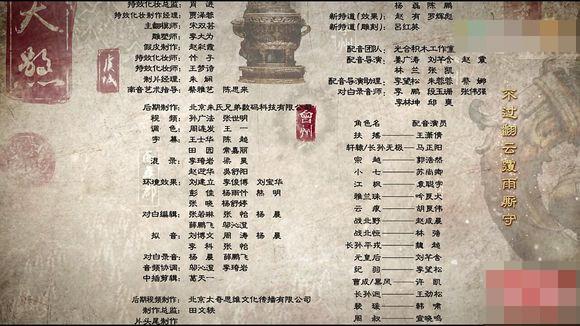 特效化妆总监: 肖进
特效化妆制作经理: 贾泽蓉
主翻模师: 宋双芬
雕塑师: 李大为
假皮制作: 赵彩霞
特效化妆师:
特效化妆师: 王梦诗
制片经理: 朱娴
南音艺术指导: 蔡雅艺 陈思来
后期制作: 北京朱氏兄弟数码科技有限公司
视频: 孙广法 张世明
调色: 周连发 王一
字幕: 王士华 陈超
田园 常嘉丽
混录: 李琦岩 梁昊
赵逆华 吴舒阳
环境效果: 刘建立 李俊博 刘宝华
彭佳 杨雨竹 熬明
张晓 杨舒婷
对白编辑: 张若琳 张帕 杨晨
薛鹏飞 邬沁滢
拟音: 刘博文 周涛 杨晨
李科 张帕
对白录音: 杨晨 薛鹏飞
音频协调: 邬沁滢 李琦岩
中插剪辑: 葛天一
后期视频制作: 北京大奇思雄文化传播有限公司
制作总监: 田文轶
片头尾制作
杨磊 陈鹏
新特道(效果): 赵有 罗辉彪
新特道(雕刻): 吕红英
配音团队: 光合积木工作室
配音导演: 姜广涛 刘芊含 赵震
林兰 张凯
配音导演助理: 李望松 朱蓉蓉 蔡娜
对白录音师: 李鹏 段玉姗 张伟强
李林坤 邱爽
角色名 配音演员
扶摇——王潇倩
轩辕/长孙无极——马正阳
宗越——郭浩然
小七——苏尚卿
江枫——袁聪宇
雅兰珠——阎艮犬
云痕——胡良伟
战北野——赵成晨
战北恒——林强
长孙平戎——魏超
元皇后——刘芊含
纪羽——李望松
曹成/黑风——许凯
长孙迥——王劲松
铁瑾——韩啸
周叔——宣晓鸣
不过翻云覆雨厮守